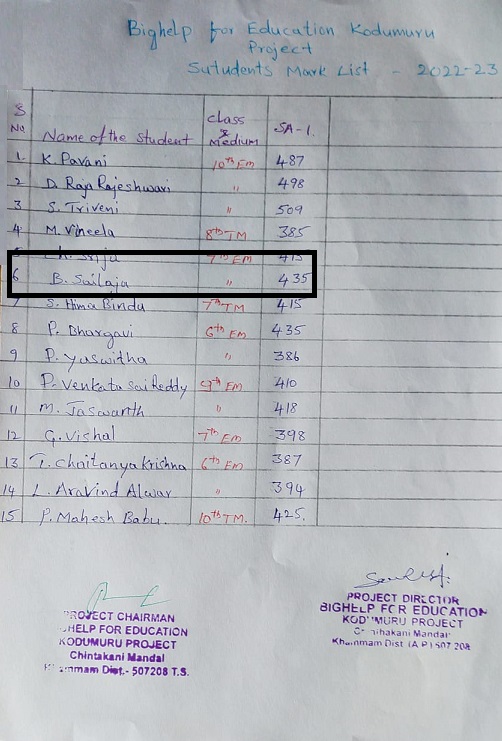 Bighelp for Education Kodumuru
Project
Sutudents Mark List - 2022-23
S No Name of the student class & medium SA-1.
1. K. Pavani 10th EM 487
2 D. Raja Rajeshwari " 498
3 S. Triveni " 509
4 M. Vineela 8th TM 385
5 Ch. Srija 7th EM 415
6 B. Sailaja " 435
7 S. Hima Bindu 7th TM 415
8 P. Bhargavi 6th EM 435
9 P. Yaswitha " 386
10 P. Venkata Sai Reddy 9th EM 410
11 M. Jaswanth " 418
12 G. Vishal 7th EM 398
13 T. Chaitanya Krishna 6th EM 387
14 L. Aravind Alwar " 394
15 P. Mahesh Babu. 10th TM. 425.
PROJECT CHAIRMAN
BIGHELP FOR EDUCATION
KODUMURU PROJECT
Chintakani Mandal
Khammam Dist.- 507208 T.S.
PROJECT DIRECTOR
BIGHELP FOR EDUCATION
KODUMURU PROJECT
Chintakani Mandal
Khammam Dist (A P) 507 208